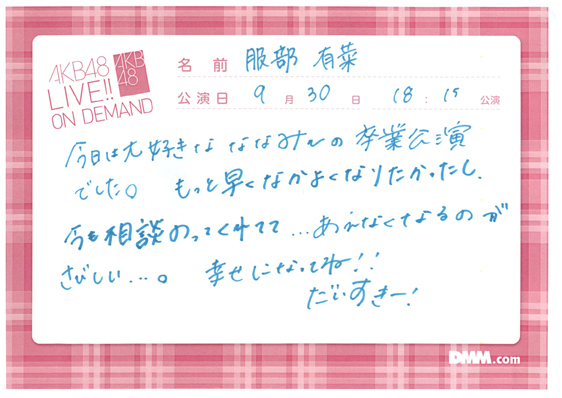 AKB48
LIVE!!
ON DEMAND
AKB
48
名前 服部 有菜
公演日 9月30日 18:15公演
今日は大好きな ななみんの 卒業公演
でした。 もっと早くなかよくなりたかったし、
今も相談のってくれてて...あえなくなるのが
さびしい...。 幸せになってね!!
だいすきー!
DMM.com